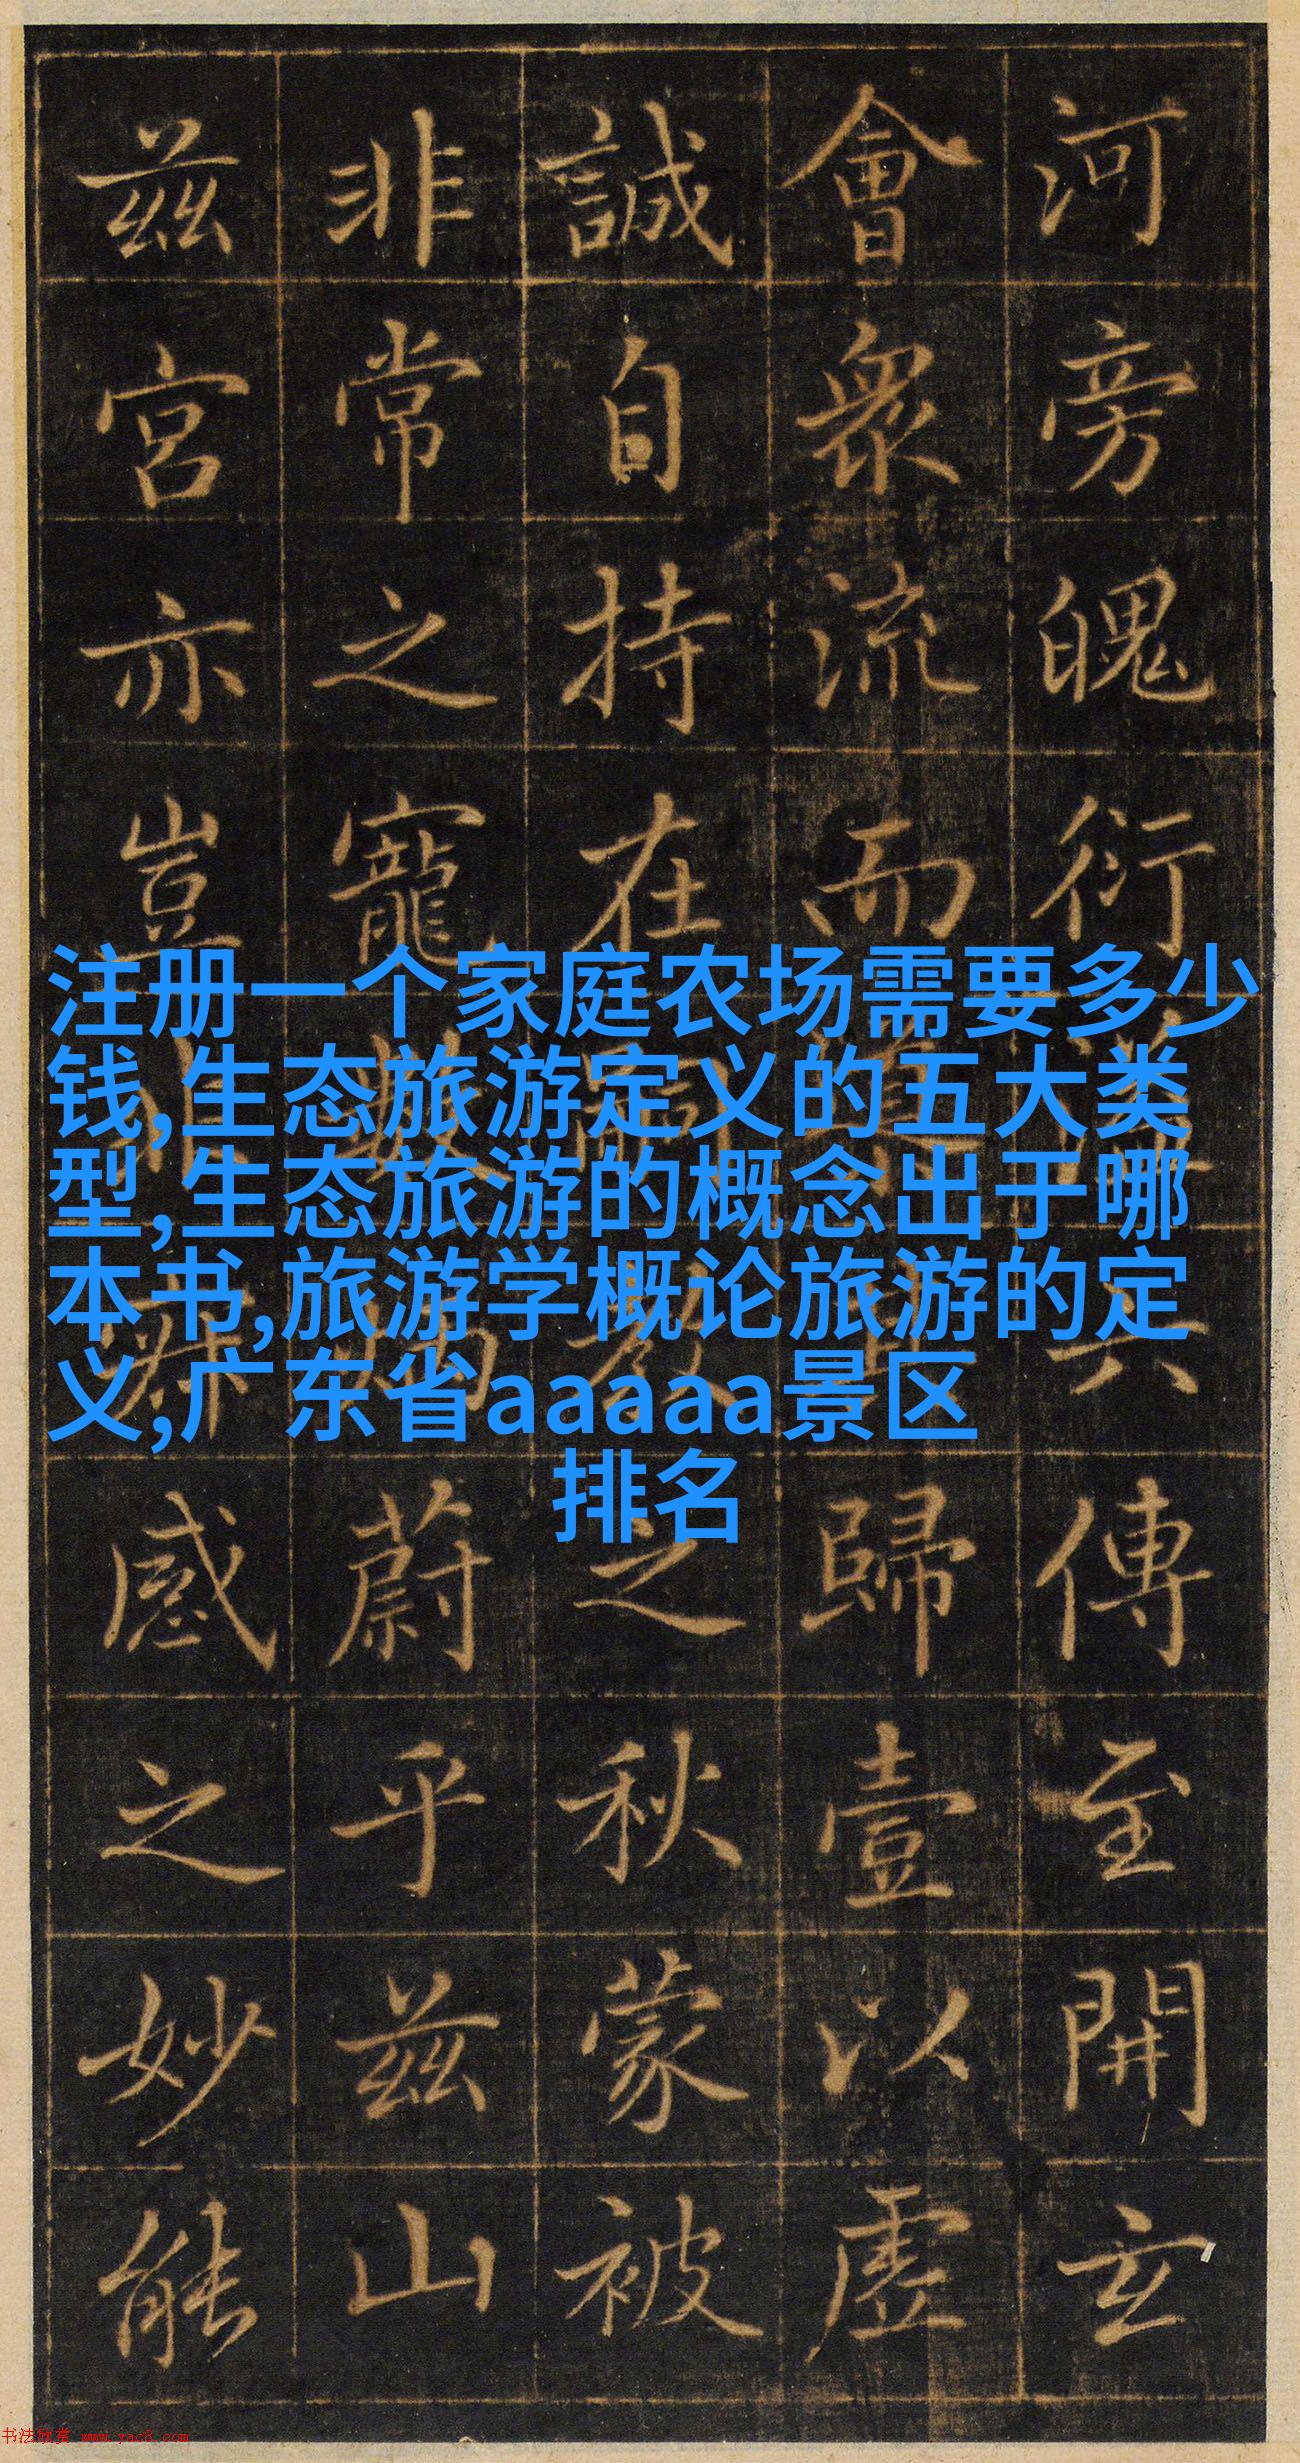 河旁魄衍六傳至開玄
會衆流而歸壹以虛
誠自持在之秋蒙被
非常之寵蔚乎兹山
兹宮亦豈感之妙能
注册一个家庭农场需要多少
钱,生态旅游定义的五大类
型,生态旅游的概念出于哪
本书,旅游学概论旅游的定
义,广东省aaaaa景区
排名
书法欣赏 www.yac8.com